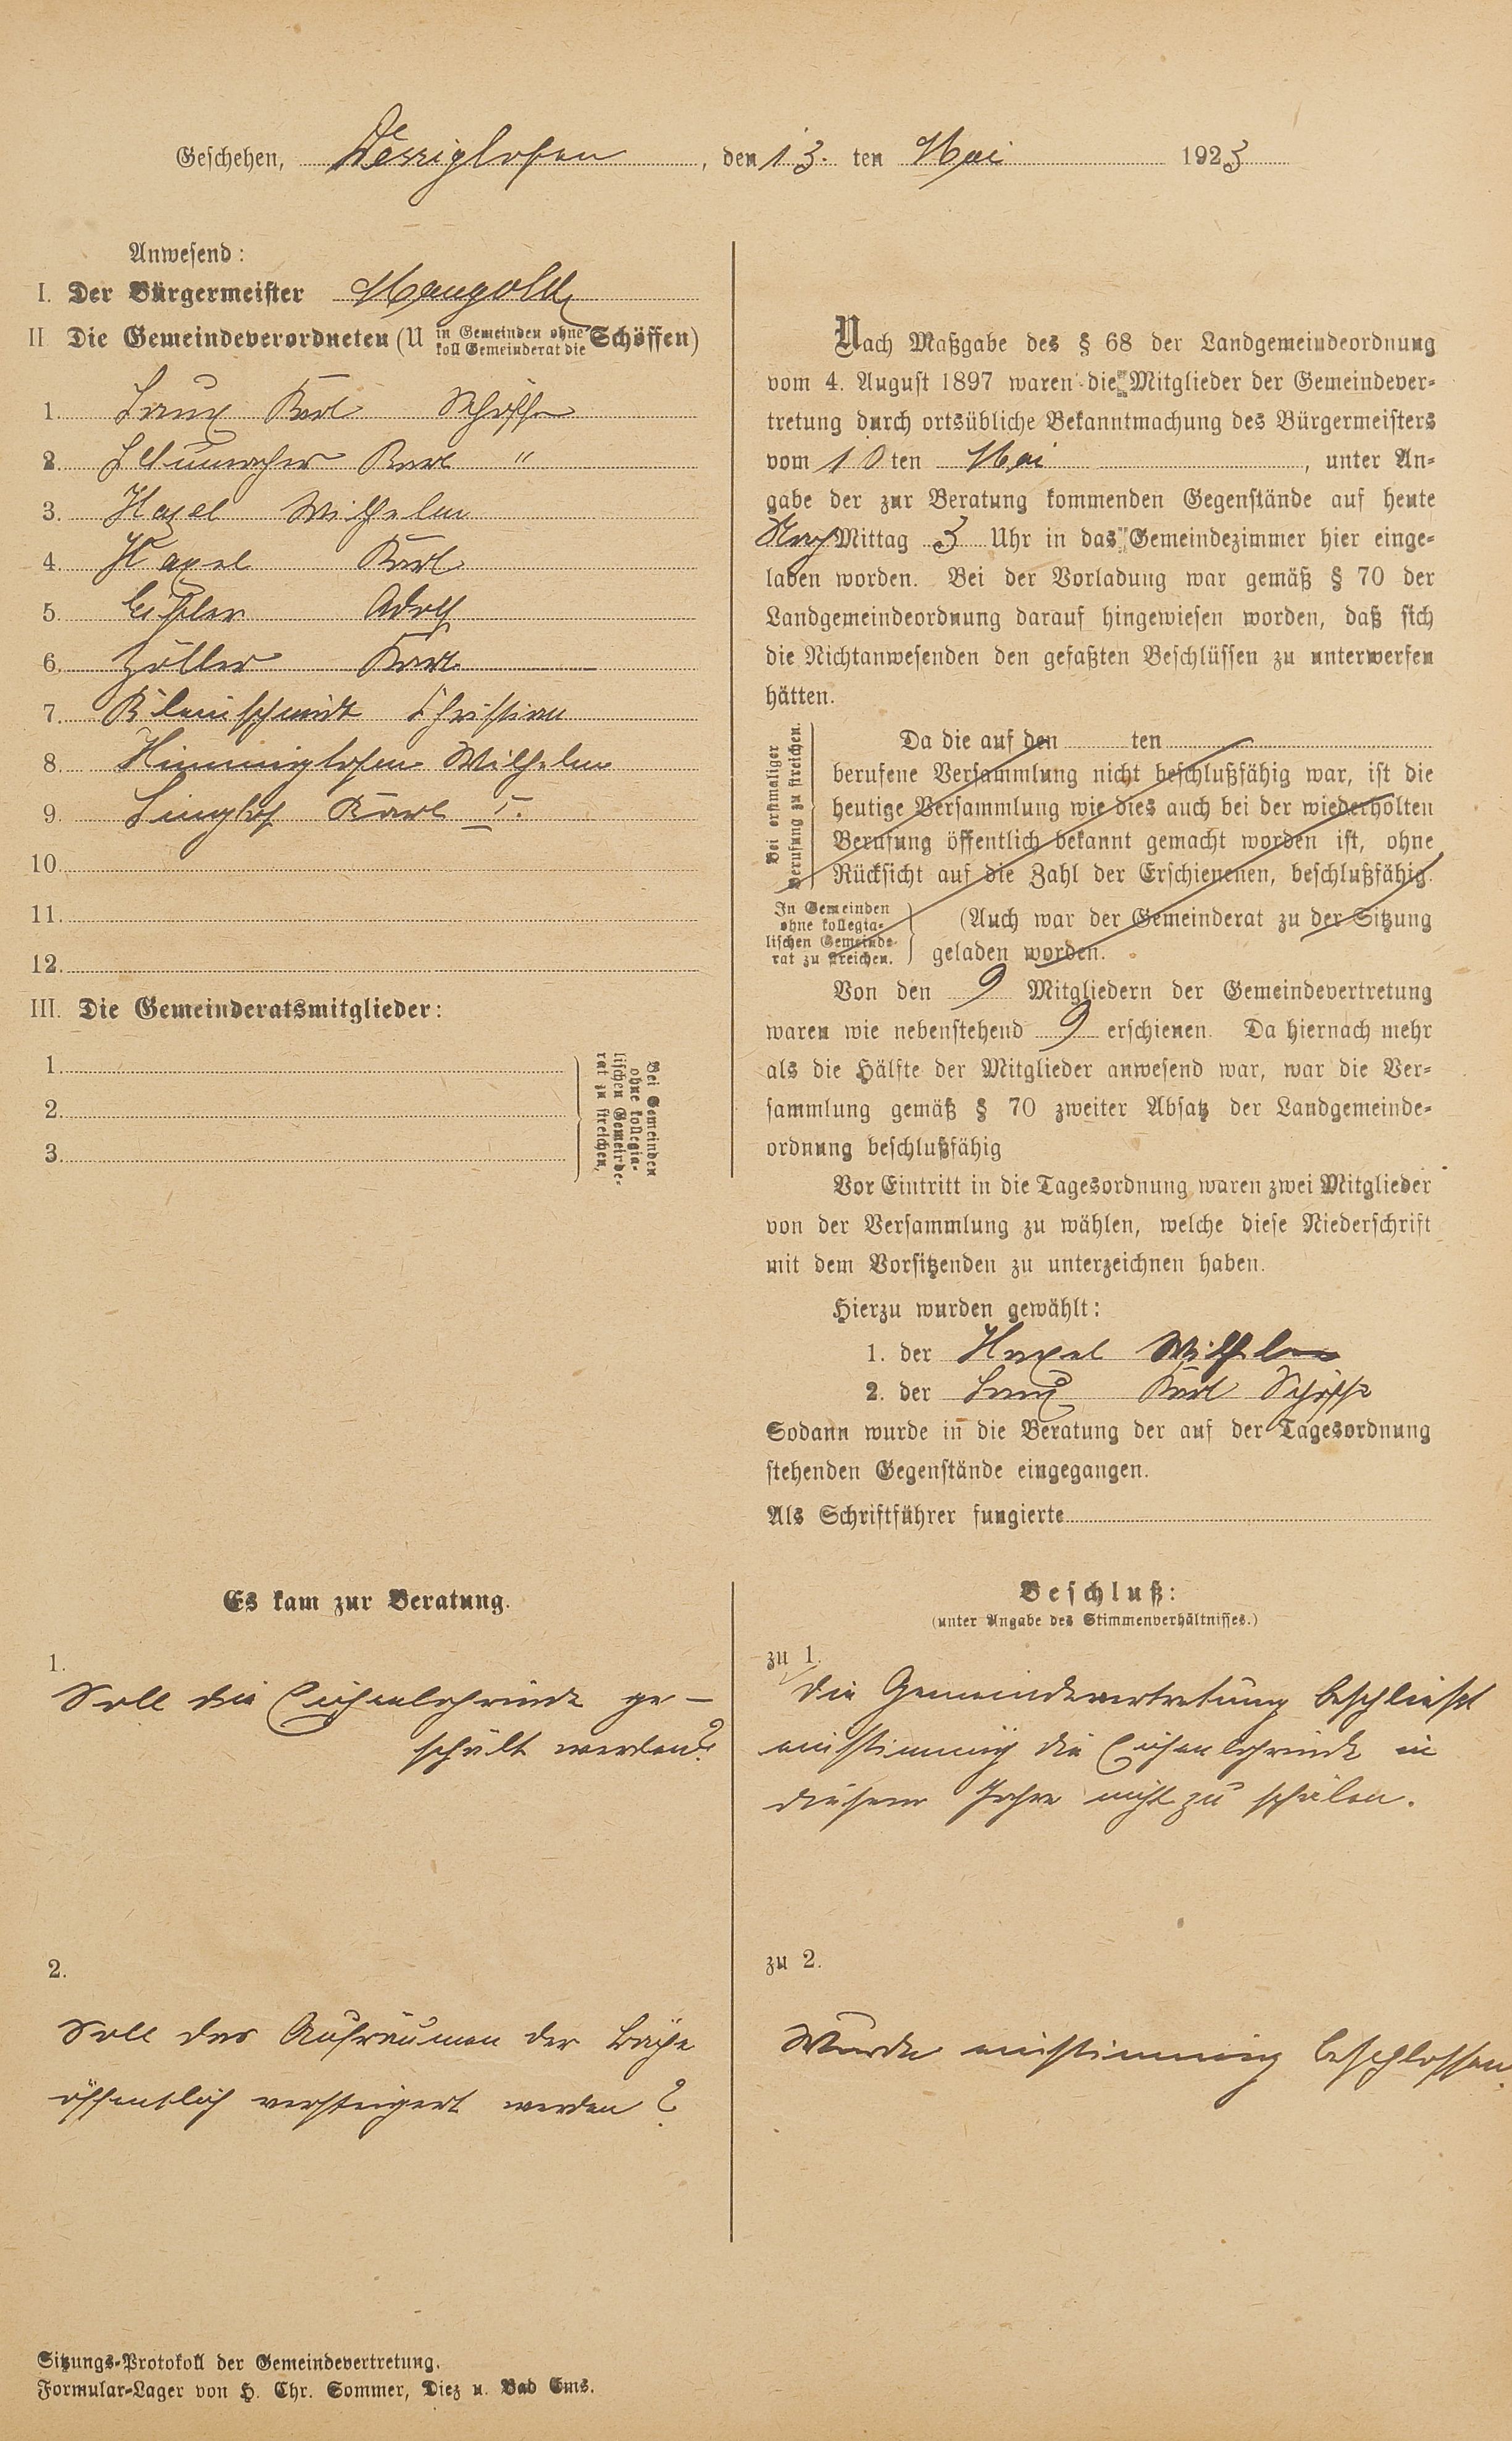 Geschehen, Dessighofen, den 13. ten Mai 1923
Anwesend:
I. Der Bürgermeister Mangold
II Die Gemeindeverordneten (U in Gemeinden ohne koll Gemeinderat die Schöffen)
1. Karl Schöffe
2. Karl "
3. Hasel Wilhelm
4. Hasel Karl
5. Adolf
6. Zöller Karl
7. Kleinschmidt Christian
8. Himmighofen Wilhelm
9. Linghof Karl I.
10.
11.
12.
III. Die Gemeinderatsmitglieder:
1.
2.
3.
Bei Gemeinden
ohne kollegia-
lischen Gemeinde-
rat zu streichen.
Nach Maßgabe des § 68 der Landgemeindeordnung
vom 4. August 1897 waren die Mitglieder der Gemeindever-
tretung durch ortsübliche Bekanntmachung des Bürgermeisters
vom 10ten Mai, unter An-
gabe der zur Beratung kommenden Gegenstände auf heute
Nach Mittag 3 Uhr in das Gemeindezimmer hier einge-
laden worden. Bei der Vorladung war gemäß § 70 der
Landgemeindeordnung darauf hingewiesen worden, daß sich
die Nichtanwesenden den gefaßten Beschlüssen zu unterwerfen
hätten.
Bei erstmaliger
Berufung zu streichen.
Da die auf den ten
berufene Versammlung nicht beschlußfähig war, ist die
heutige Versammlung wie dies auch bei der wiederholten
Berufung öffentlich bekannt gemacht worden ist, ohne
Rücksicht auf die Zahl der Erschienenen, beschlußfähig.
In Gemeinden
ohne kollegia-
lischen Gemeinde-
rat zu streichen.
(Auch war der Gemeinderat zu der Sitzung
geladen worden.
Von den 9 Mitgliedern der Gemeindevertretung
waren wie nebenstehend 9 erschienen. Da hiernach mehr
als die Hälfte der Mitglieder anwesend war, war die Ver-
sammlung gemäß § 70 zweiter Absatz der Landgemeinde-
ordnung beschlußfähig
Vor Eintritt in die Tagesordnung waren zwei Mitglieder
von der Versammlung zu wählen, welche diese Niederschrift
mit dem Vorsitzenden zu unterzeichnen haben.
Hierzu wurden gewählt:
1. der Hasel Wilhelm
2. der Karl Schöffe
Sodann wurde in die Beratung der auf der Tagesordnung
stehenden Gegenstände eingegangen.
Als Schriftführer fungierte
Es kam zur Beratung.
1.
Soll die Eichenlohrinde ge-
schält werden?
2.
Soll das Aufräumen der Bäche
öffentlich versteigert werden?
Beschluß:
(unter Angabe des Stimmenverhältnisses.)
zu 1.
Die Gemeindevertretung beschließt
einstimmig die Eichenlohrinde in
diesem Jahre nicht zu schälen.
zu 2.
Wurde einstimmig beschlossen.
Sitzungs-Protokoll der Gemeindevertretung.
Formular-Lager von H. Chr. Sommer, Diez u. Bad Ems.